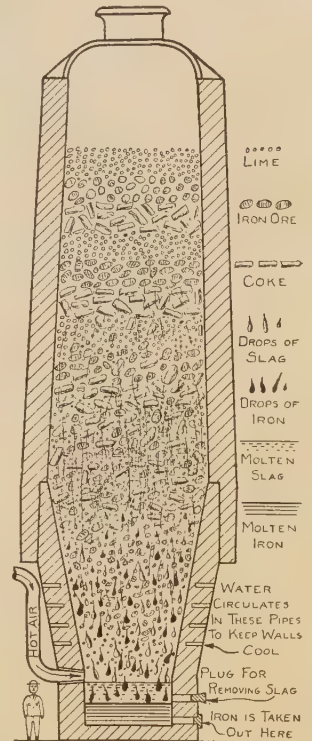 LIME
IRON ORE
COKE
DROPS OF
SLAG
DROPS OF
IRON
MOLTEN
SLAG
MOLTEN
IRON
HOT AIR
WATER
CIRCULATES
IN THESE PIPES
TO KEEP WALLS
COOL
PLUG FOR
REMOVING SLAG
IRON IS TAKEN
OUT HERE